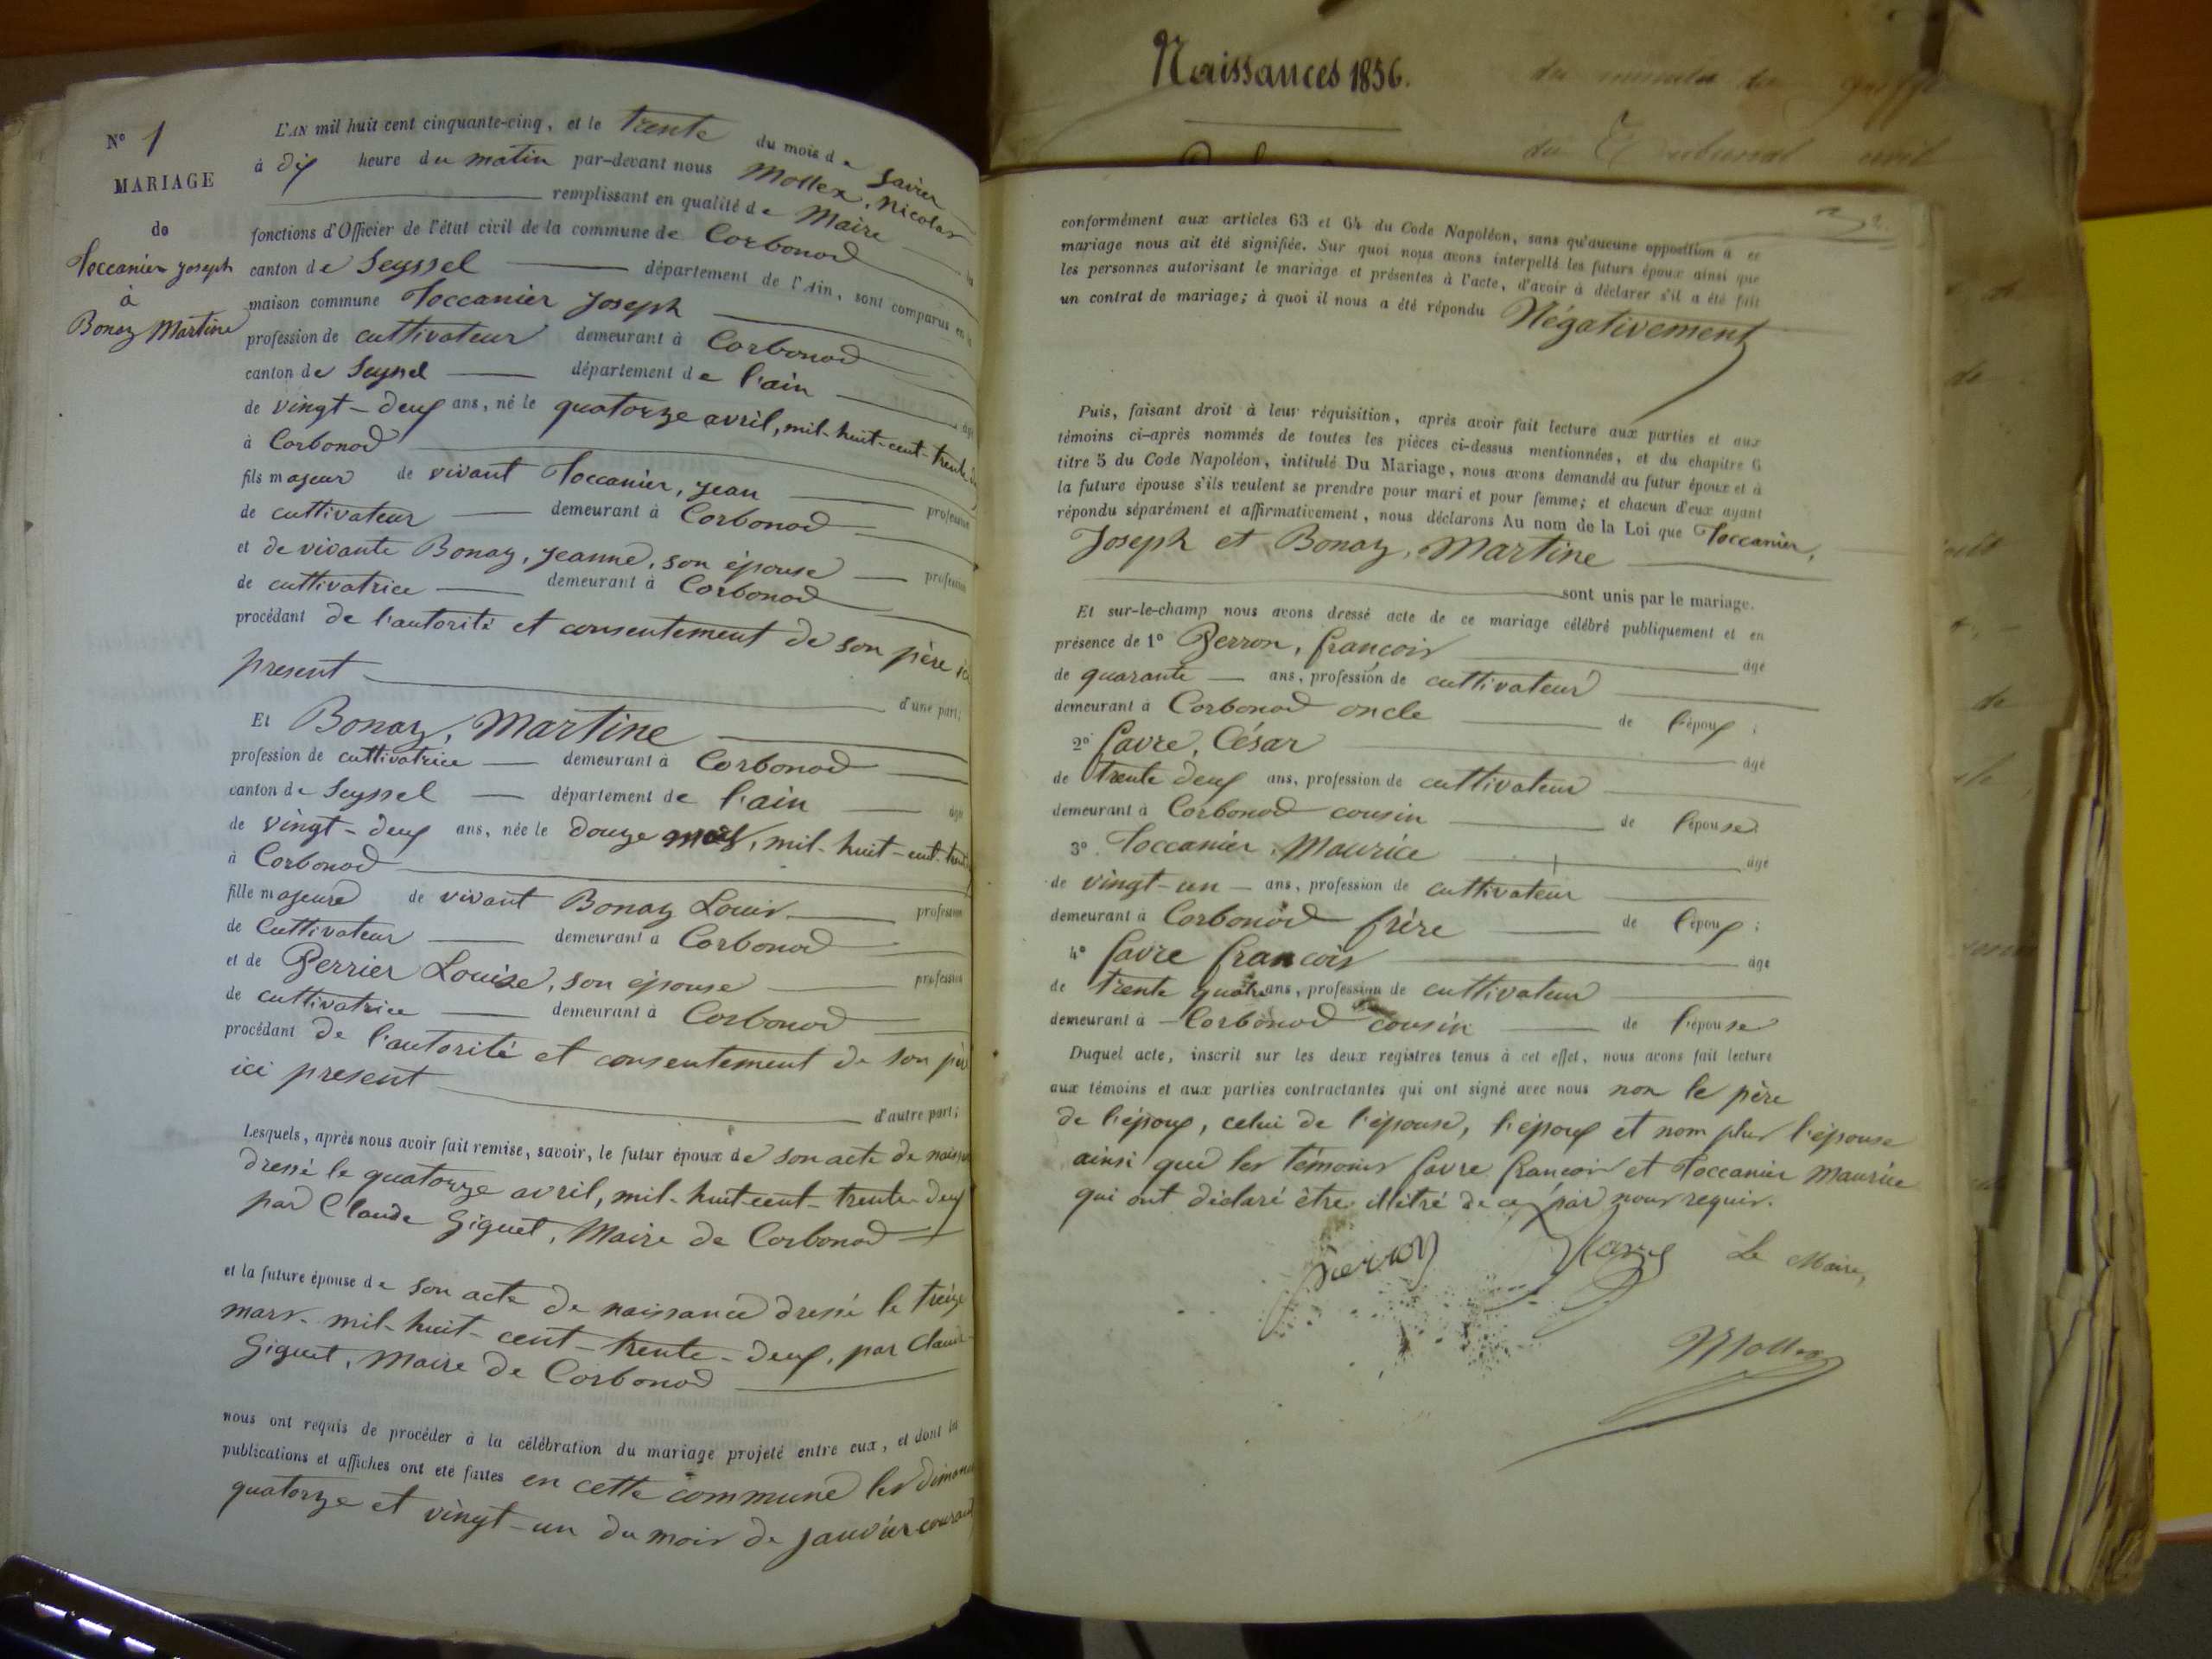 N° 1
MARIAGE
de
Toccanier Joseph
à
Bonaz Martine
L'AN mil huit cent cinquante-cinq, et le trente du mois de Janvier
à dix heure du matin par-devant nous Mollex, Nicolas
remplissant en qualité de Maire les
fonctions d'Officier de l'état civil de la commune de Corbonod
canton de Seyssel département de l'Ain, sont comparus en la
maison commune Toccanier Joseph
profession de cultivateur demeurant à Corbonod
canton de Seyssel département de l'ain âgé
de vingt-deux ans, né le quatorze avril, mil-huit-cent-trente
à Corbonod
fils majeur de vivant Toccanier, Jean profession
de cultivateur demeurant à Corbonod
et de vivante Bonaz, Jeanne, son épouse profession
de cultivatrice demeurant à Corbonod
procédant de l'autorité et consentement de son père ici
present d'une part;
Et Bonaz, Martine
profession de cultivatrice demeurant à Corbonod
canton de Seyssel département de l'ain âgé
de vingt-deux ans, née le douze mars, mil-huit-cent-trente
à Corbonod
fille majeure de vivant Bonaz Louis profession
de cultivateur demeurant à Corbonod
et de Perrier Louise, son épouse profession
de cultivatrice demeurant à Corbonod
procédant de l'autorité et consentement de son père
ici present d'autre part;
Lesquels, après nous avoir fait remise, savoir, le futur époux de son acte de naissance
dressé le quatorze avril, mil-huit-cent-trente-deux
par Claude Giguet, Maire de Corbonod
et la future épouse de son acte de naissance dressé le treize
mars-mil-huit-cent-trente-deux, par Claude
Giguet, Maire de Corbonod
nous ont requis de procéder à la célébration du mariage projeté entre eux, et dont les
publications et affiches ont été faites en cette commune les dimanches
quatorze et vingt-un du mois de janvier courant
Naissances 1856.
du greffe
du Tribunal civil
conformément aux articles 63 et 64 du Code Napoléon, sans qu'aucune opposition à ce
mariage nous ait été signifiée. Sur quoi nous avons interpellé les futurs époux ainsi que
les personnes autorisant le mariage et présentes à l'acte, d'avoir à déclarer s'il a été fait
un contrat de mariage; à quoi il nous a été répondu Négativement
Puis, faisant droit à leur réquisition, après avoir fait lecture aux parties et aux
témoins ci-après nommés de toutes les pièces ci-dessus mentionnées, et du chapitre 6
titre 5 du Code Napoléon, intitulé Du Mariage, nous avons demandé au futur époux et à
la future épouse s'ils veulent se prendre pour mari et pour femme; et chacun d'eux ayant
répondu séparément et affirmativement, nous déclarons Au nom de la Loi que Toccanier,
Joseph et Bonaz, Martine
sont unis par le mariage.
Et sur-le-champ nous avons dressé acte de ce mariage célébré publiquement et en
présence de 1° Perron, françois âgé
de quarante ans, profession de cultivateur
demeurant à Corbonod oncle de l'époux;
2° favre, César âgé
de trente deux ans, profession de cultivateur
demeurant à Corbonod cousin de l'épouse;
3° Toccanier, Maurice âgé
de vingt-un ans, profession de cultivateur
demeurant à Corbonod frère de l'époux;
4° favre francois âgé
de trente quatre ans, profession de cultivateur
demeurant à Corbonod cousin de l'épouse
Duquel acte, inscrit sur les deux registres tenus à cet effet, nous avons fait lecture
aux témoins et aux parties contractantes qui ont signé avec nous non le père
de l'époux, celui de l'épouse, l'époux et nom plus l'épouse
ainsi que les témoins favre françois et Toccanier Maurice
qui ont déclaré être illitré de ce par nous requis.
perron Le Maire,
Mollex